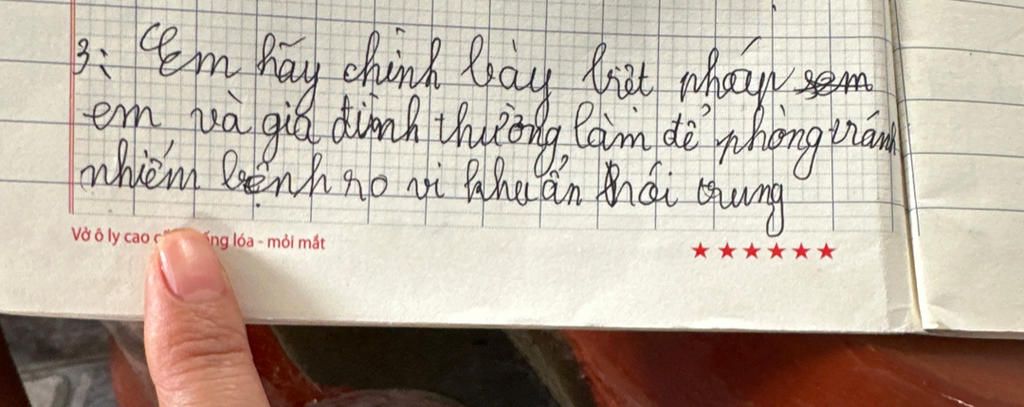 3: Em hãy chình bày biệt pháp sem
em và gia đình thường làm để phòng tránh
nhiễm bệnh no vi khuẩn nói chung
Vở ô ly cao c ng lóa - mỏi mắt